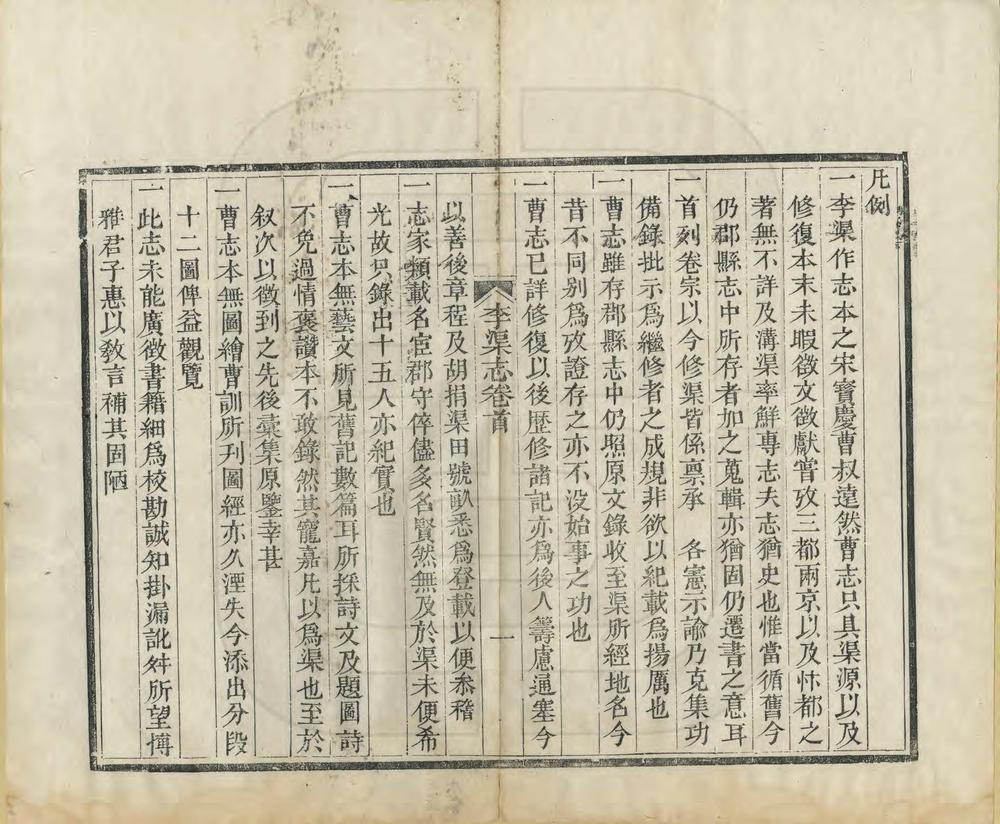 凡例
一李渠作志本之宋寶慶曹叔遠然曹志只具渠源以及
修復本末未暇徵文徵獻嘗攷三都兩京以及汴都之
著無不詳及溝渠率鮮專志夫志猶史也惟當循舊今
仍郡縣志中所存者加之蒐輯亦猶固仍遷書之意耳
一首列卷宗以今修渠皆係禀承 各憲示諭乃克集功
備錄批示爲繼修者之成規非欲以紀載爲揚厲也
一曹志雖存郡縣志中仍照原文錄收至渠所經地名今
昔不同別爲攷證存之亦不没始事之功也
一曹志已詳修復以後歷修諸記亦爲後人籌慮通塞今
李渠志卷首
一
以善後章程及胡捐渠田號畝悉爲登載以便叅稽
一志家類載名宦郡守倅儘多名賢然無及於渠未便希
光故只錄出十五人亦紀實也
一曹志本無藝文所見舊記數篇耳所採詩文及題圖詩
不免過情褒讚本不敢錄然其寵嘉凡以爲渠也至於
叙次以徵到之先後彙集原鑒幸甚
一曹志本無圖繪曹訓所刋圖經亦久湮失今添出分段
十二圖俾益觀覽
一此志未能廣徵書籍細爲校勘誠知掛漏訛舛所望摶
雅君子惠以敎言補其固陋